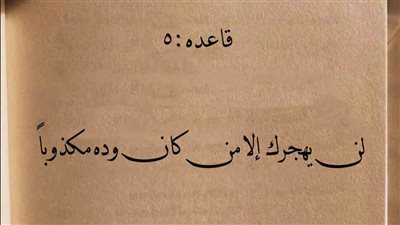 قاعده :٥
لن يهجرك إلا من كان وده مكذوباً